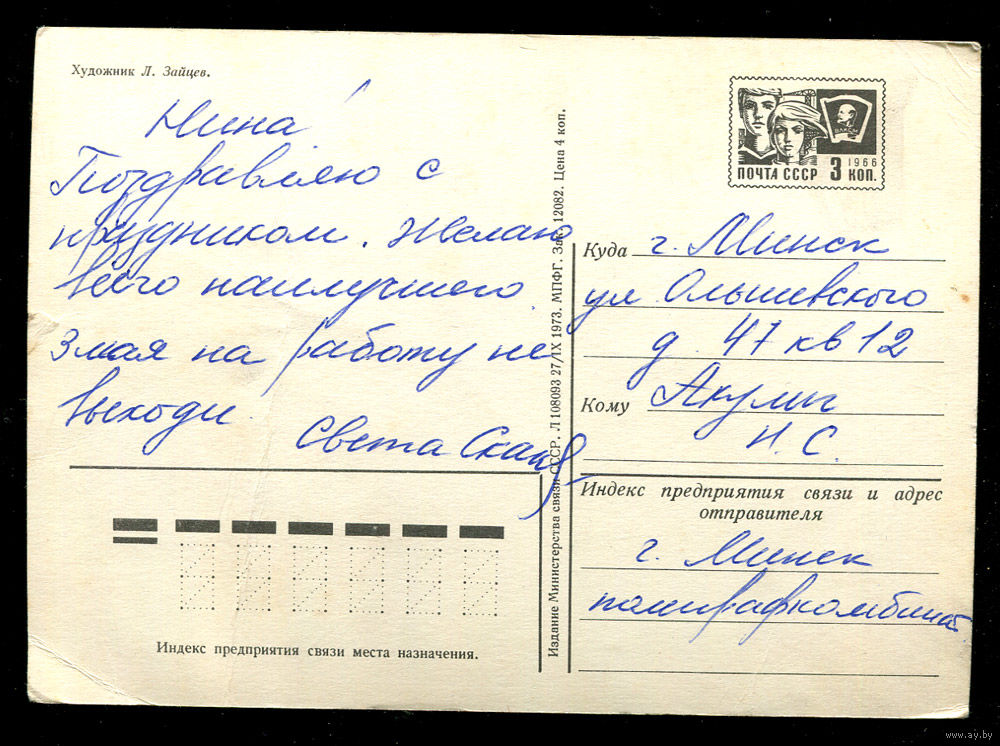 Художник Л. Зайцев.
Нина
Поздравляю с
праздником. Желаю
всего наилучшего.
3 мая на работу не
выходи.
Света
ПОЧТА СССР 3 КОП.
1966
Куда г. Минск
ул Ольшевского
д 47 кв 12
Кому
Н. С.
Индекс предприятия связи и адрес
отправителя
г. Минск
полиграфкомбинат
Издание Министерства связи СССР. Л 108093 27/IX 1973. МПФГ. Зак. 12082. Цена 4 коп.
Индекс предприятия связи места назначения.
www.ay.by